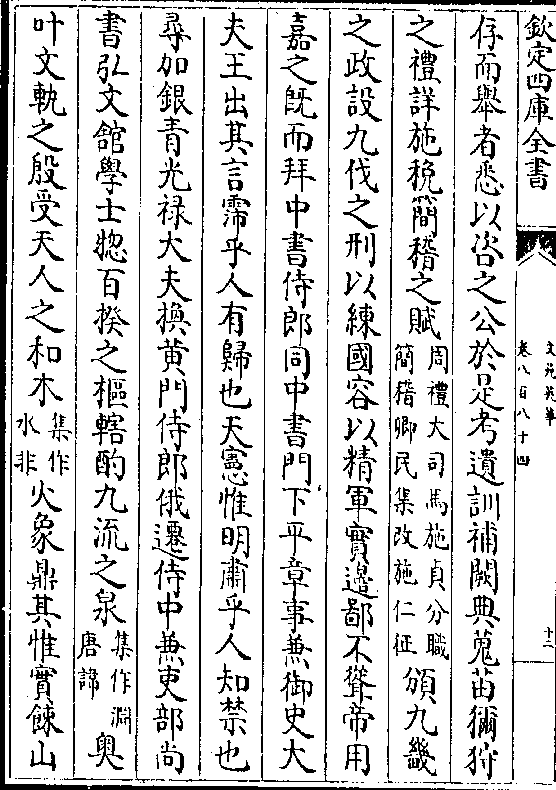 欽定四庫全書
文苑英華
卷八百八十四
十二
存而舉者悉以咨之公於是考遺訓補闕典蒐苗獮狩
之禮詳施稅簡稽之賦周禮大司馬施貞分職簡稽卿民集改施仁征頒九畿
之政設九伐之刑以練國容以精軍實邊鄙不聳帝用
嘉之旣而拜中書侍郎同中書門下平章事兼御史大
夫王出其言霈乎人有歸也天憲惟明肅乎人知禁也
尋加銀青光禄大夫換黄門侍郎俄遷侍中兼吏部尚
書弘文館學士惣百揆之樞轄酌九流之泉集作淵唐諱奥
叶文軌之殷受天人之和木集作水非火象鼎其惟實餗山